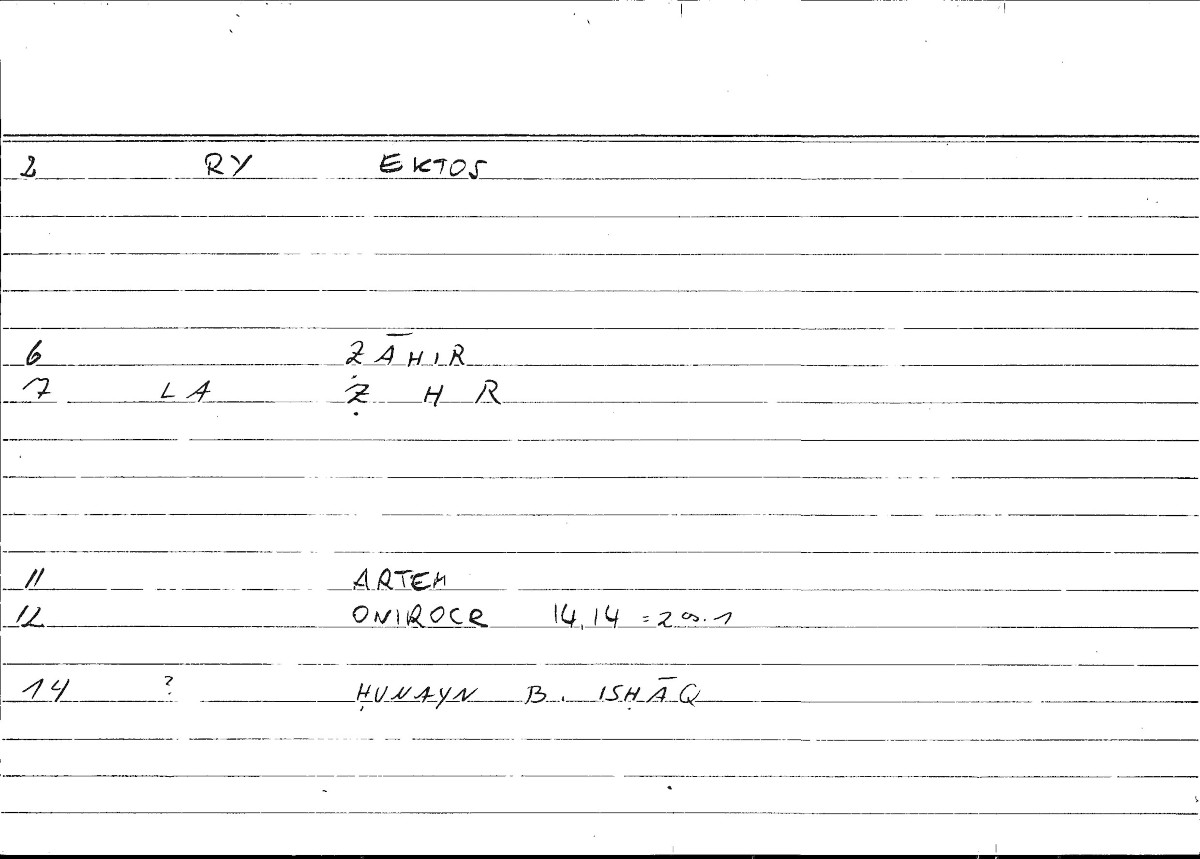 2 RY EKTOS
6 ẒĀHIR
7 LA Ẓ H R
11 ARTEM
12 ONIROCR 14,14 =
14 ? ḤUNAYN B. ISḤĀQ